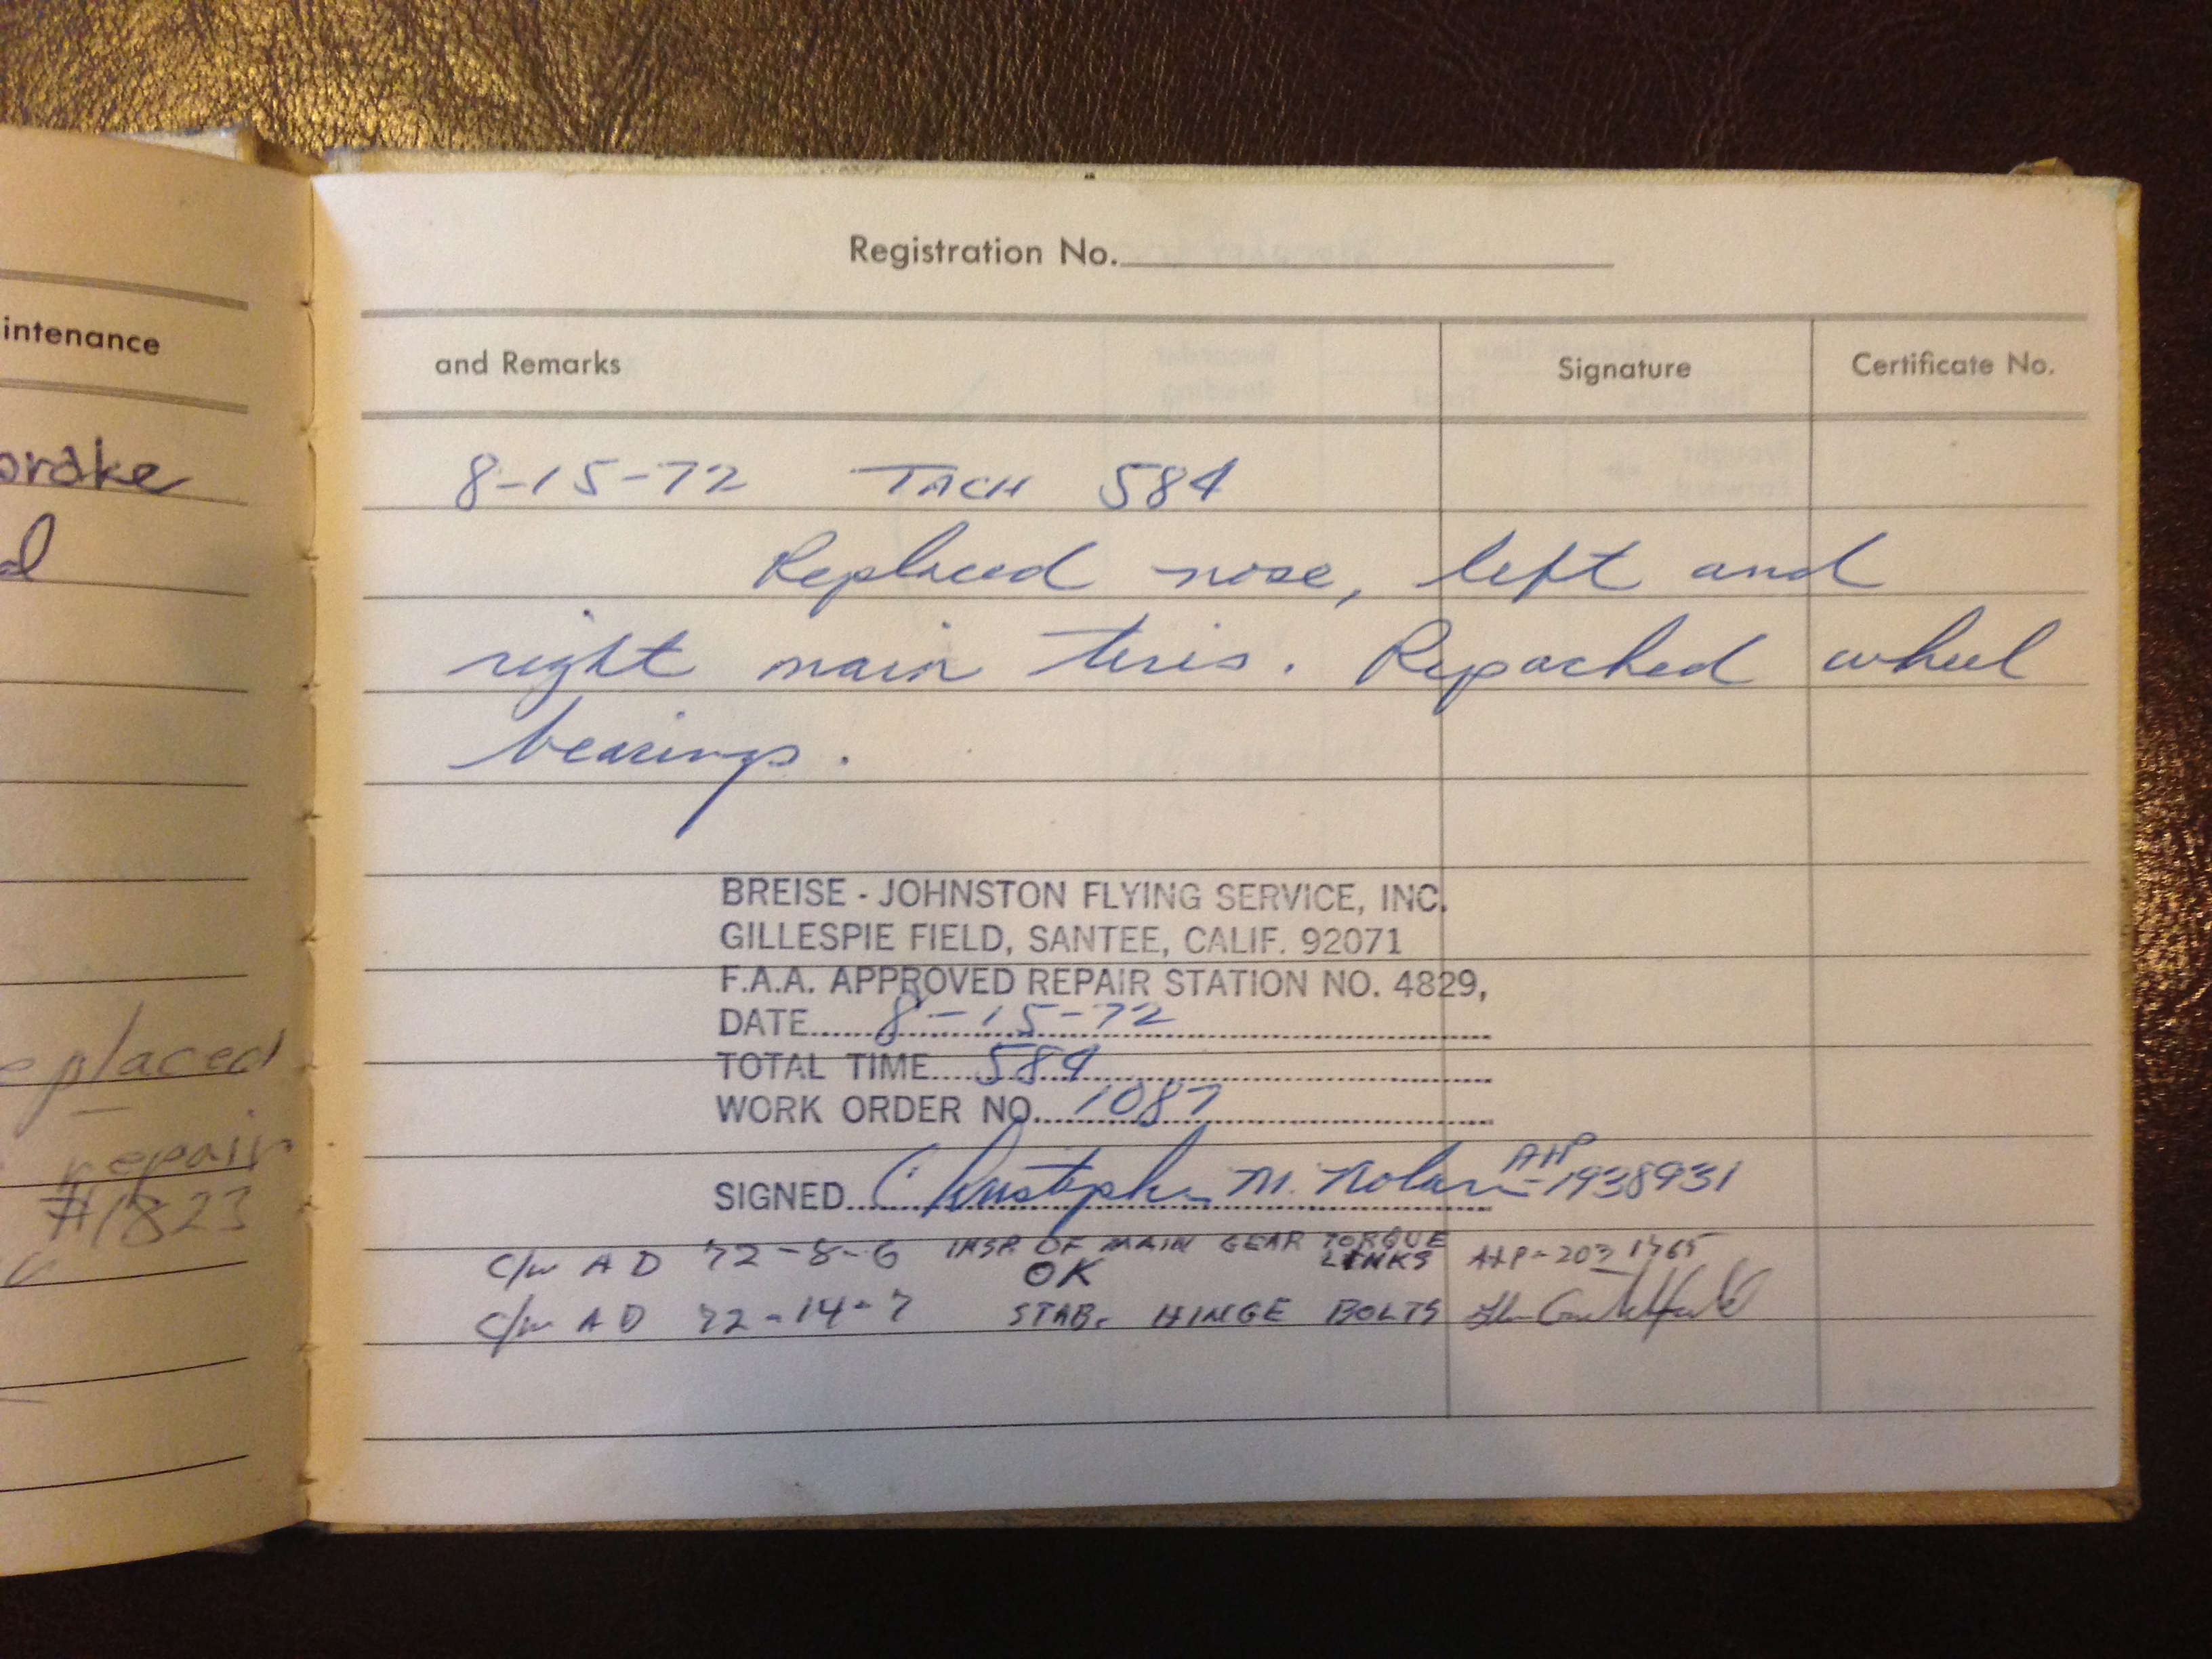 intenance
orake
d
eplaced
repair
#1823
Registration No.
and Remarks Signature Certificate No.
8-15-72 TACH 584
Replaced nose, left and
right main tires. Repacked wheel
bearings.
BREISE - JOHNSTON FLYING SERVICE, INC.
GILLESPIE FIELD, SANTEE, CALIF. 92071
F.A.A. APPROVED REPAIR STATION NO. 4829,
DATE 8-15-72
TOTAL TIME 584
WORK ORDER NO. 1087
SIGNED Christopher M. Nolan A+P 1938931
C/W AD 72-8-6 INSP. OF MAIN GEAR TORQUE LINKS OK A+P-2031765
C/W AD 72-14-7 STAB. HINGE BOLTS